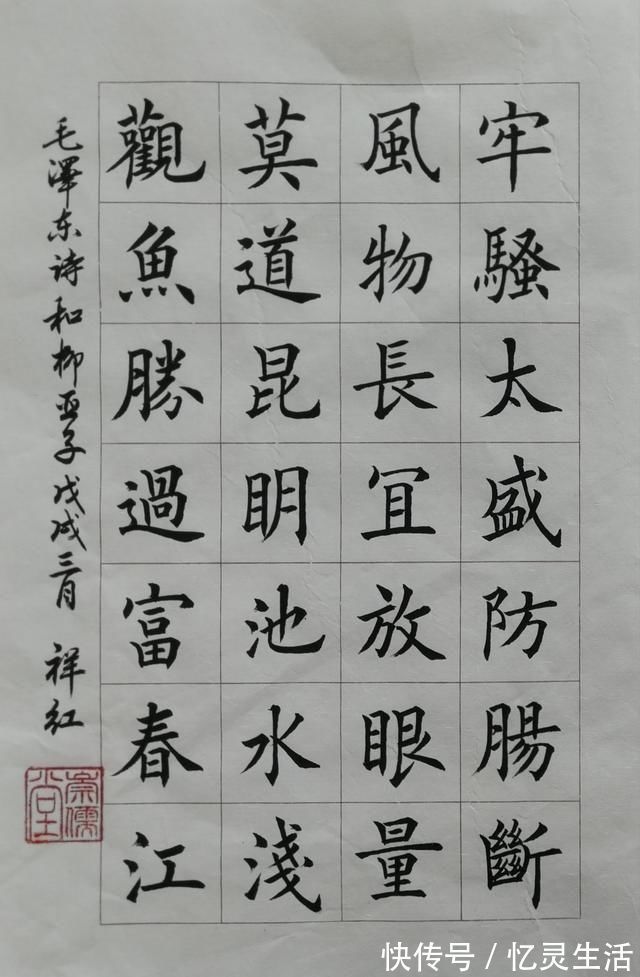 牢騷太盛防腸斷
風物長冝放眼量
莫道昆明池水淺
觀魚勝過富春江
毛澤东诗和柳亚子戊戌三月 祥红
崇儒堂
快传号 / 忆灵生活